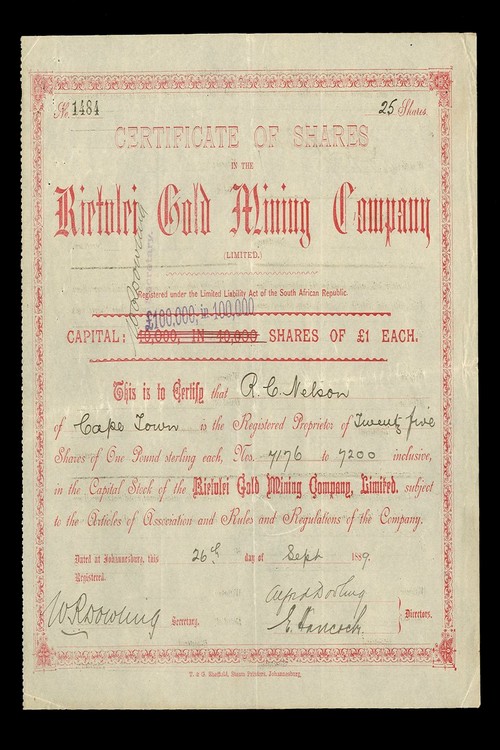 No. 1484 25 Shares.
CERTIFICATE OF SHARES
IN THE
Rietvlei Gold Mining Company
(LIMITED.)
Registered under the Limited Liability Act of the South African Republic.
£100,000, in 100,000
CAPITAL: 40,000, IN 40,000 SHARES OF £1 EACH.
This is to Certify that R. C. Nelson
of Cape Town is the Registered Proprietor of Twenty five
Shares of One Pound sterling each, Nos. 7176 to 7200 inclusive,
in the Capital Stock of the Rietvlei Gold Mining Company, Limited, subject
to the Articles of Association and Rules and Regulations of the Company.
Dated at Johannesburg, this 26th day of Sept 1889.
Registered.
Alfred Dowling
W R Dowling Secretary. E. Hancock. Directors.
T. & G. Sheffield, Steam Printers, Johannesburg.